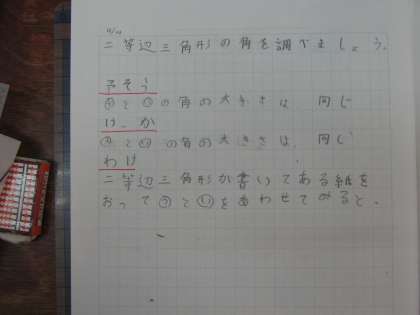 二等辺三角形の角を調べましょう。
予そう
㋐と㋑の角の大きさは 同じ
けっか
㋐と㋑の角の大きさは、同じ
わけ
二等辺三角形が書いてある紙を
おって㋐と㋑をあわせてみると、